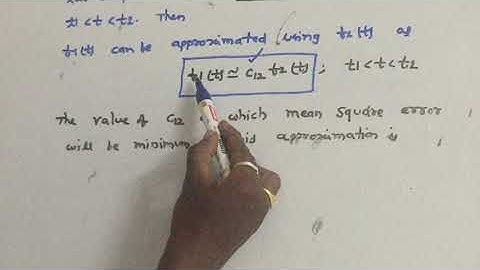 t1 < t < t2. Then
f1(t) can be approximated (using f2(t) as
f1(t) ≃ C12 f2(t) ; t1 < t < t2
The value of C12 which mean square error
will be minimum approximation is